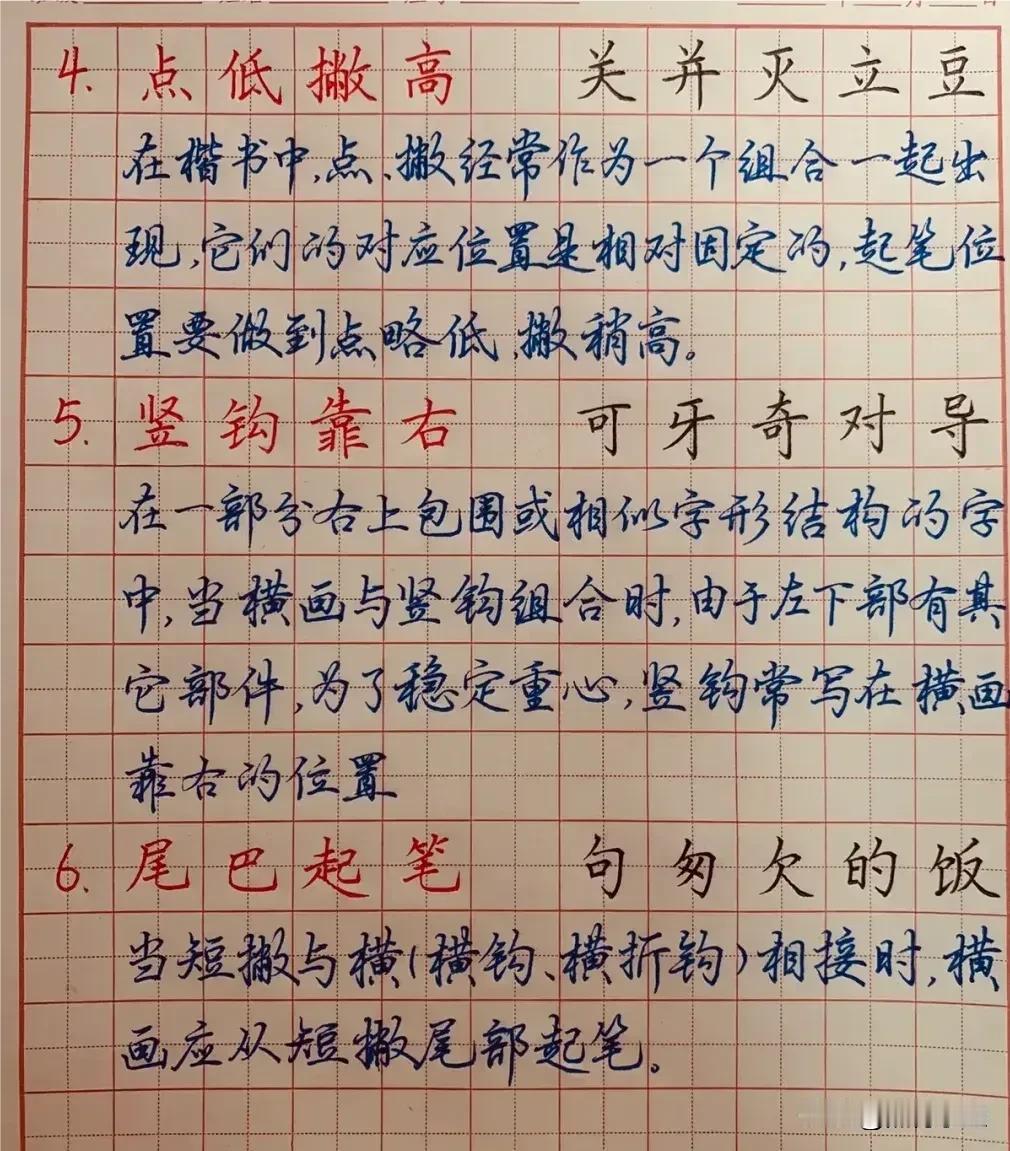 4. 点低撇高 关并灭立豆
在楷书中,点、撇经常作为一个组合一起出
现,它们的对应位置是相对固定的,起笔位
置要做到点略低,撇稍高。
5. 竖钩靠右 可牙奇对导
在一部分右上包围或相似字形结构的字
中,当横画与竖钩组合时,由于左下部有其
它部件,为了稳定重心,竖钩常写在横画
靠右的位置
6. 尾巴起笔 句匆欠的饭
当短撇与横(横钩、横折钩)相接时,横
画应从短撇尾部起笔。